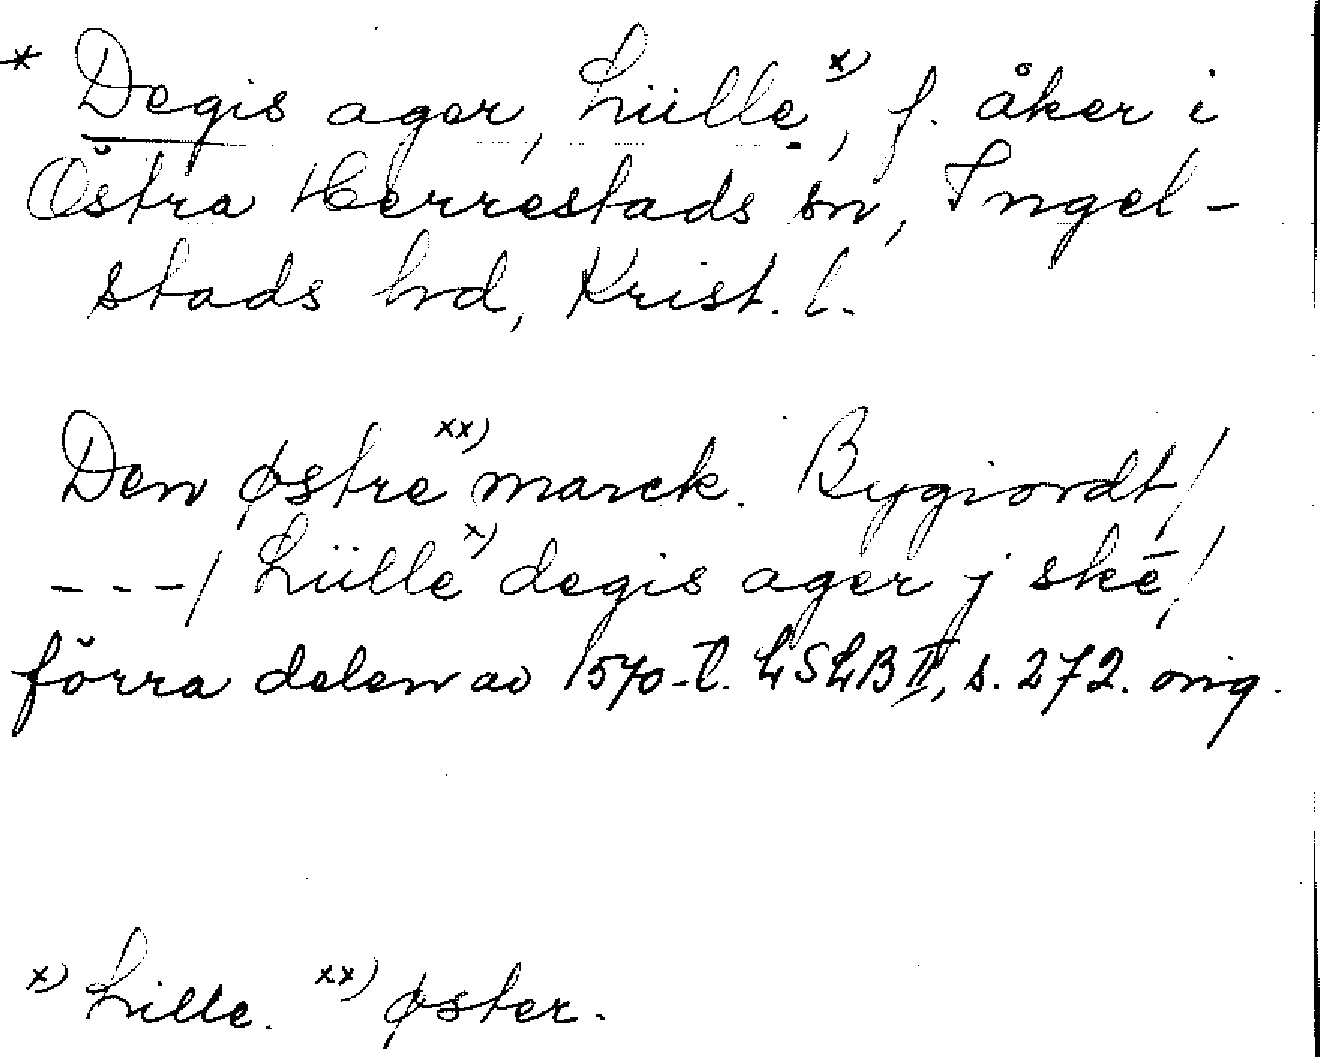 * Degis ager, Lülle x), f. åker i
Östra Herrestads sn, Ingel-
stads hd, Krist. l.
Den østre xx) marck. Bygiordt/
---/ Lülle x) degis ager j skē/
förra delen av 1570-t. LSLB II, s. 272. orig.
x) Lille. xx) øster.